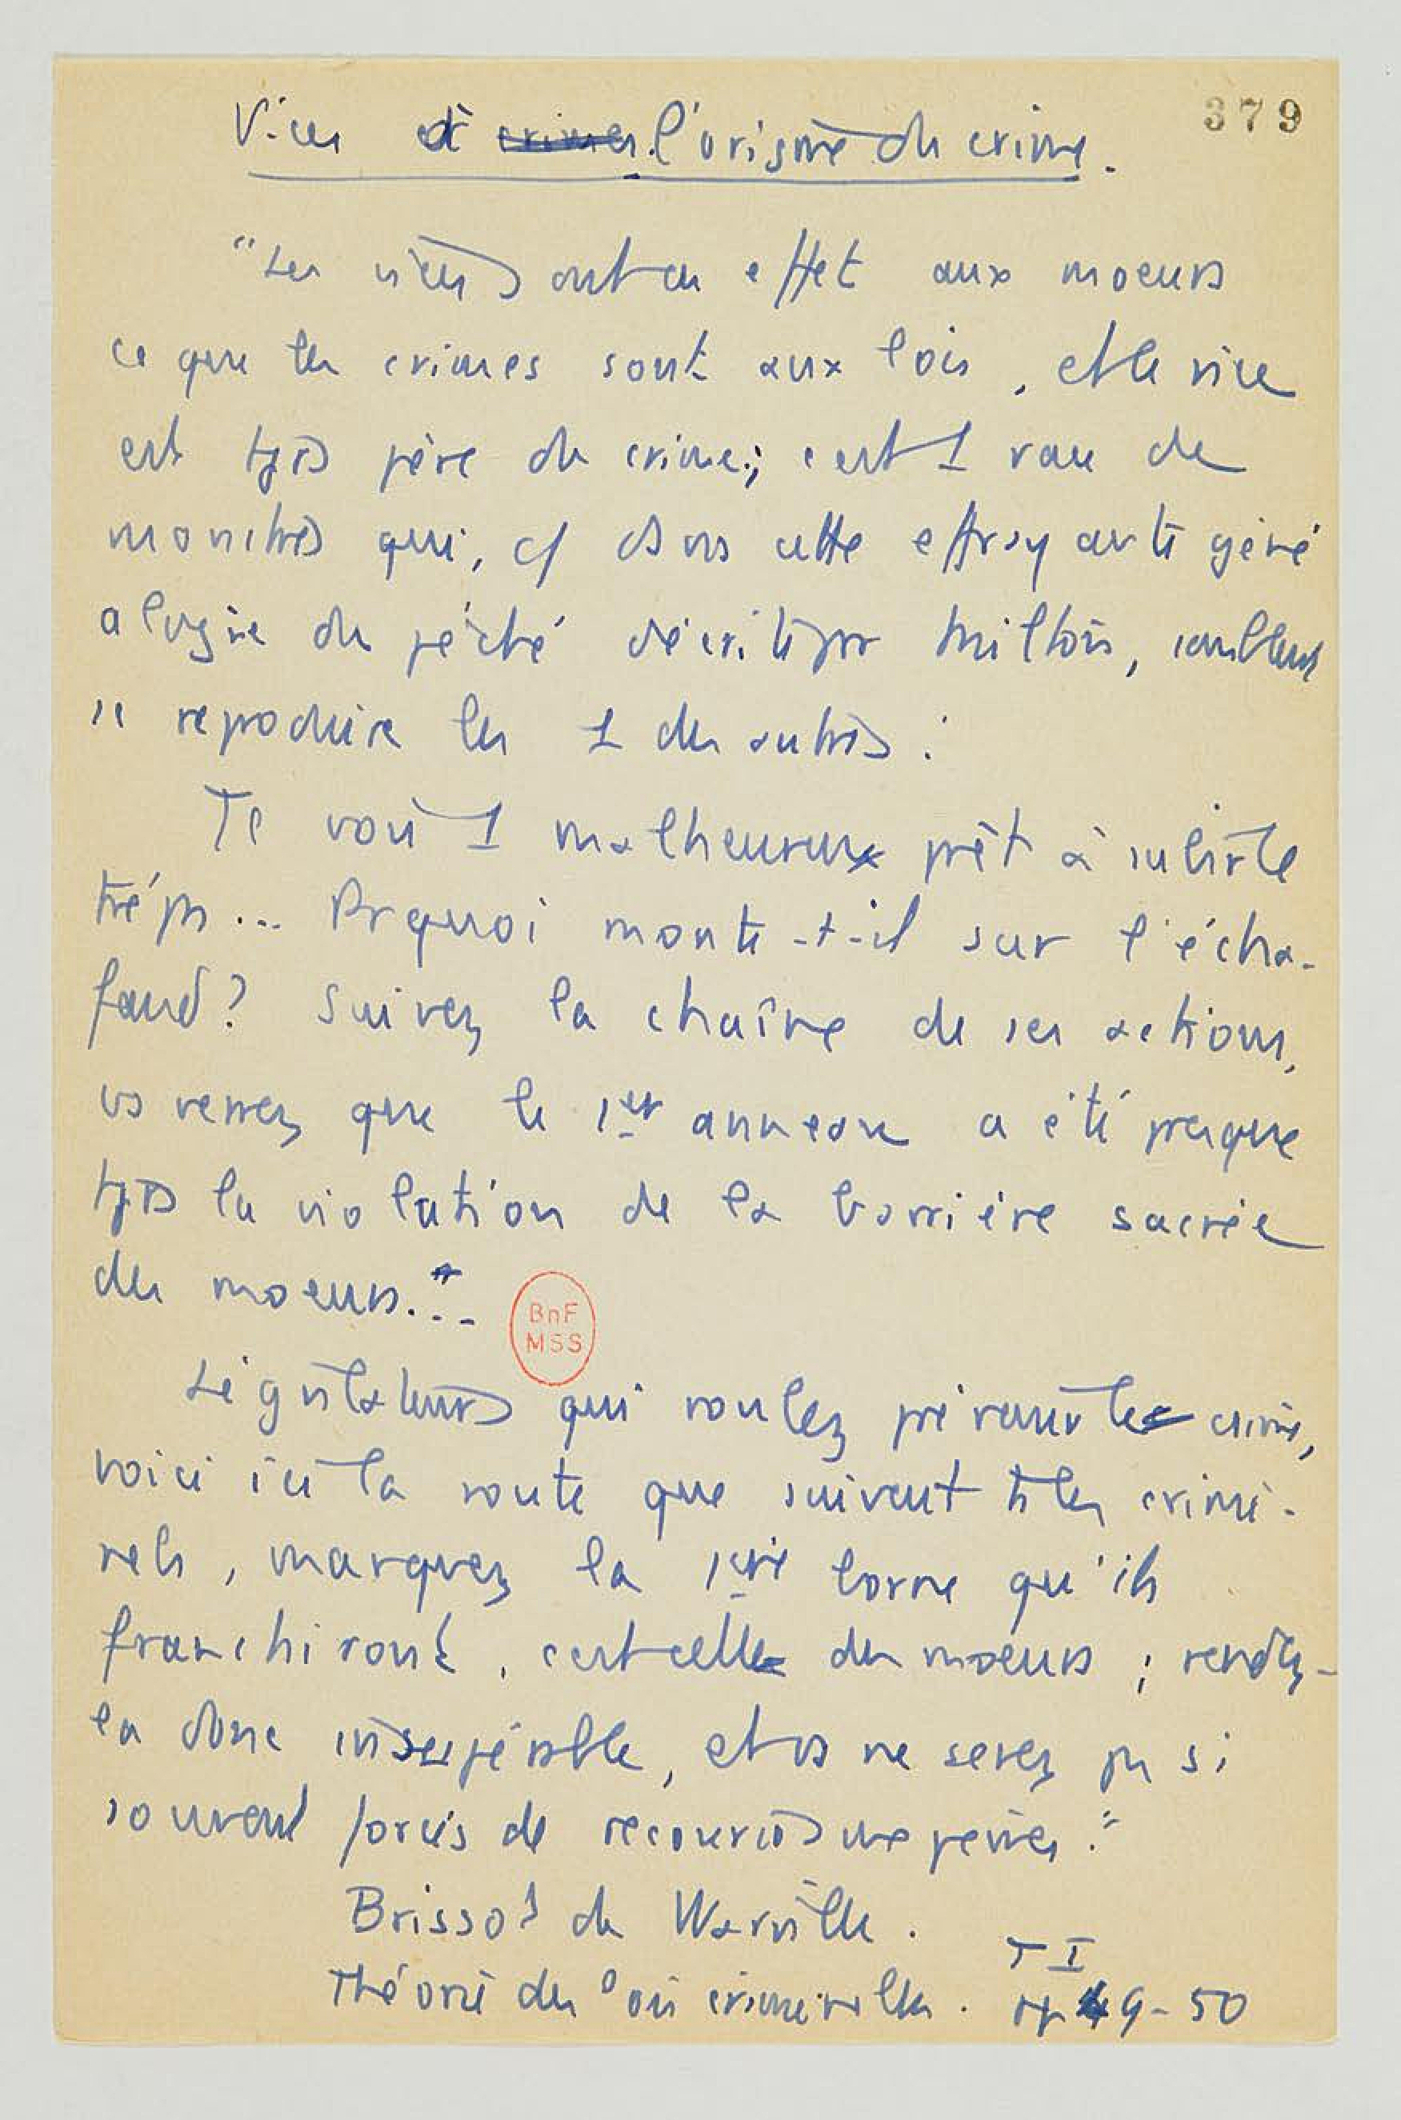 379
Vices et crimes l'origine du crime.
"Les vices sont en effet aux moeurs
ce que les crimes sont aux lois, et le vice
est tjrs père du crime; c'est 1 race de
monstres qui, cf dans cette effroyante géné
alogie du péché décrite par Milton, semblent
se reproduire les 1 des autres.
Je vois 1 malheureux prêt à subir le
trépas... Prquoi monte-t-il sur l'écha-
faud? Suivez la chaîne de ses actions,
vs verrez que le 1er anneau a été presque
tjrs la violation de la barrière sacrée
des moeurs...
BnF
MSS
Législateurs qui voulez prévenir le crime,
voici ici la route que suivent ts les crimi-
nels, marquez la 1ère borne qu'ils
franchiront, c'est celle des moeurs; rendez-
la donc insurpérable, et vs ne serez pas si
souvent forcés de recourir aux peines."
Brissot de Warville.
T I
Théorie des lois criminelles. pp 49-50